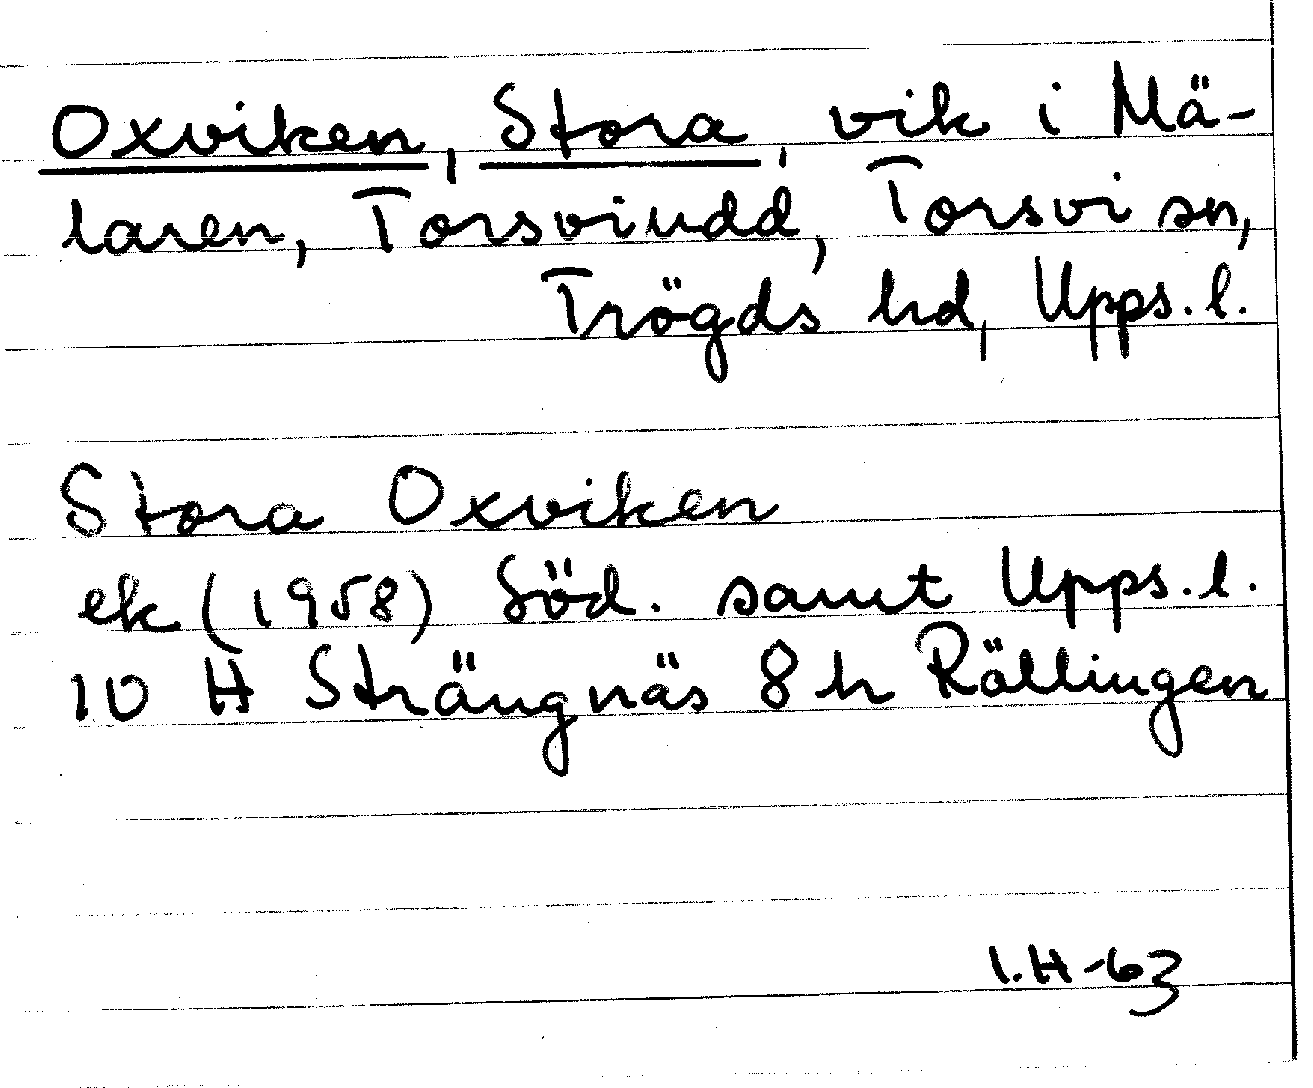 Oxviken, Stora, vik i Mä-
laren, Torsviudd, Torsvi sn,
Trögds hd, Upps.l.
Stora Oxviken
ek (1958) Söd. samt Upps.l.
10 H Strängnäs 8 h Rällingen
I.H-63